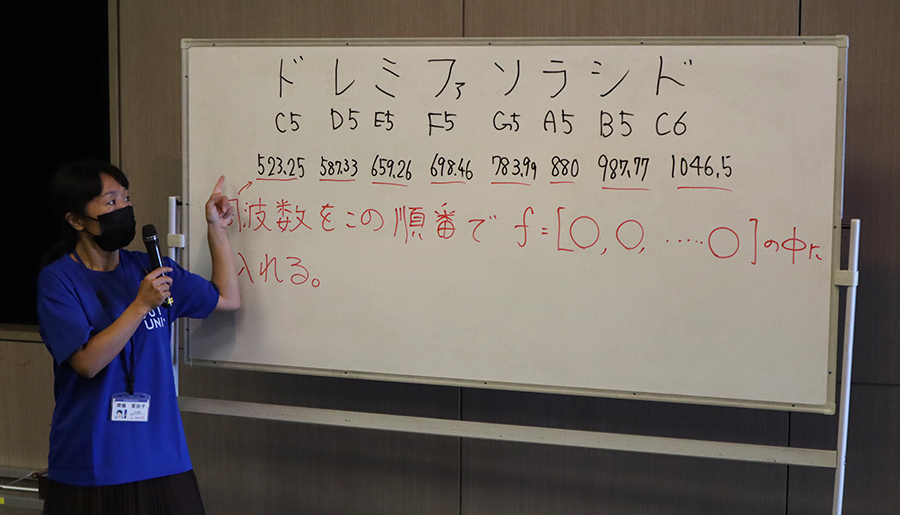 ドレミファソラシド
C5 D5 E5 F5 G5 A5 B5 C6
523.25 587.33 659.26 698.46 783.99 880 987.77 1046.5
波数をこの順番で f=[〇,〇,‥‥〇]の中に
入れる。
UNI